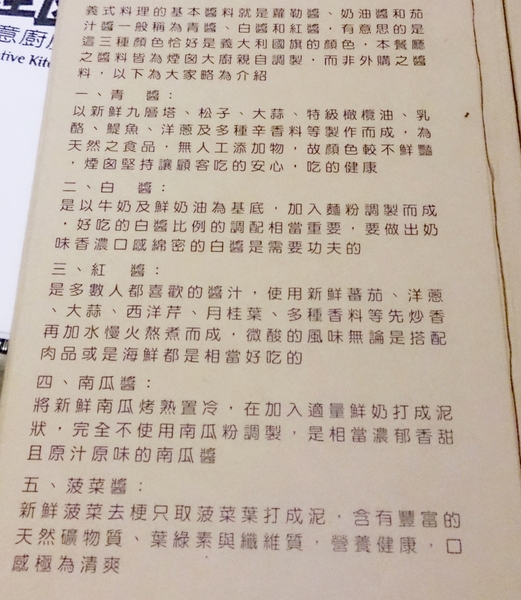 意廚房
ative Kit
義式料理的基本醬料就是蘿勒醬、奶油醬和茄
汁醬一般稱為青醬、白醬和紅醬，有意思的是
這三種顏色恰好是義大利國旗的顏色，本餐廳
之醬料皆為煙囪大廚親自調製，而非外購之醬
料，以下為大家略為介紹
一、青　醬：
以新鮮九層塔、松子、大蒜、特級橄欖油、乳
酪、鯷魚、洋蔥及多種辛香料等製作而成，為
天然之食品，無人工添加物，故顏色較不鮮豔
，煙囪堅持讓顧客吃的安心，吃的健康
二、白　醬：
是以牛奶及鮮奶油為基底，加入麵粉調製而成
，好吃的白醬比例的調配相當重要，要做出奶
味香濃口感綿密的白醬是需要功夫的
三、紅　醬：
是多數人都喜歡的醬汁，使用新鮮蕃茄、洋蔥
、大蒜、西洋芹、月桂葉、多種香料等先炒香
再加水慢火熬煮而成，微酸的風味無論是搭配
肉品或是海鮮都是相當好吃的
四、南瓜醬：
將新鮮南瓜烤熟置冷，在加入適量鮮奶打成泥
狀，完全不使用南瓜粉調製，是相當濃郁香甜
且原汁原味的南瓜醬
五、菠菜醬：
新鮮菠菜去梗只取菠菜葉打成泥，含有豐富的
天然礦物質、葉綠素與纖維質，營養健康，口
感極為清爽